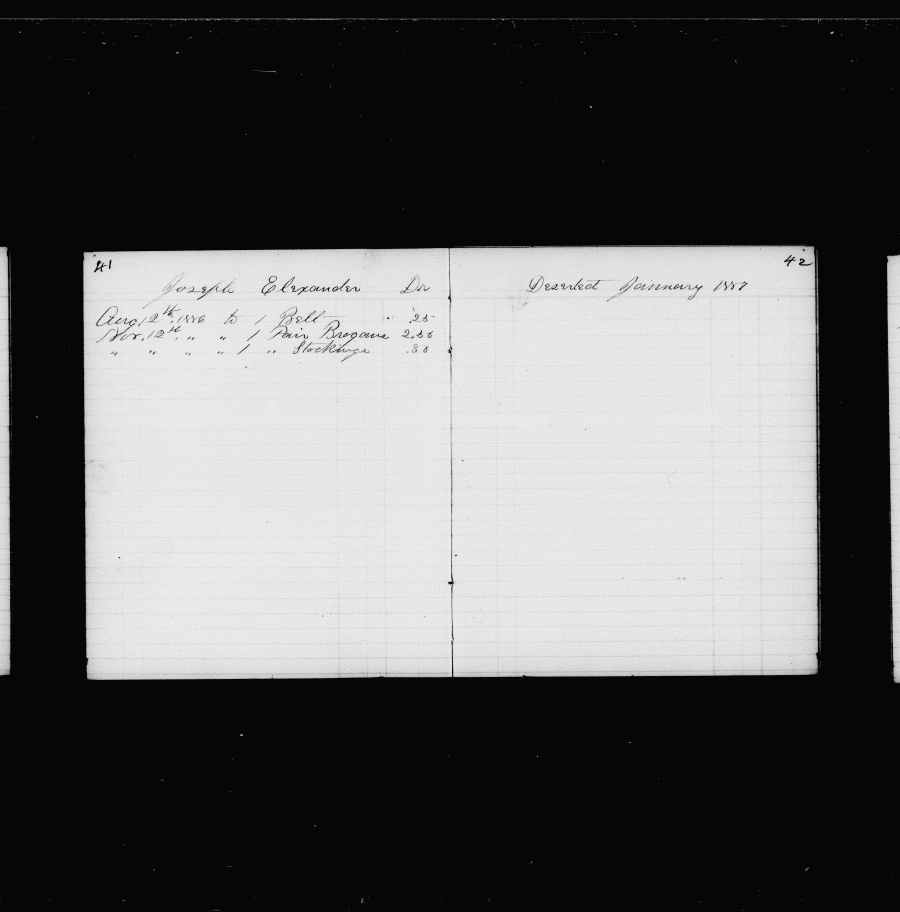 41
Joseph Elexander Dr
Aug, 12th, 1886 to 1 Belt .25
Nov, 12th, " " 1 Pair Brogans 2.50
" " " " 1 " Stockings .30
42
Deserted January 1887